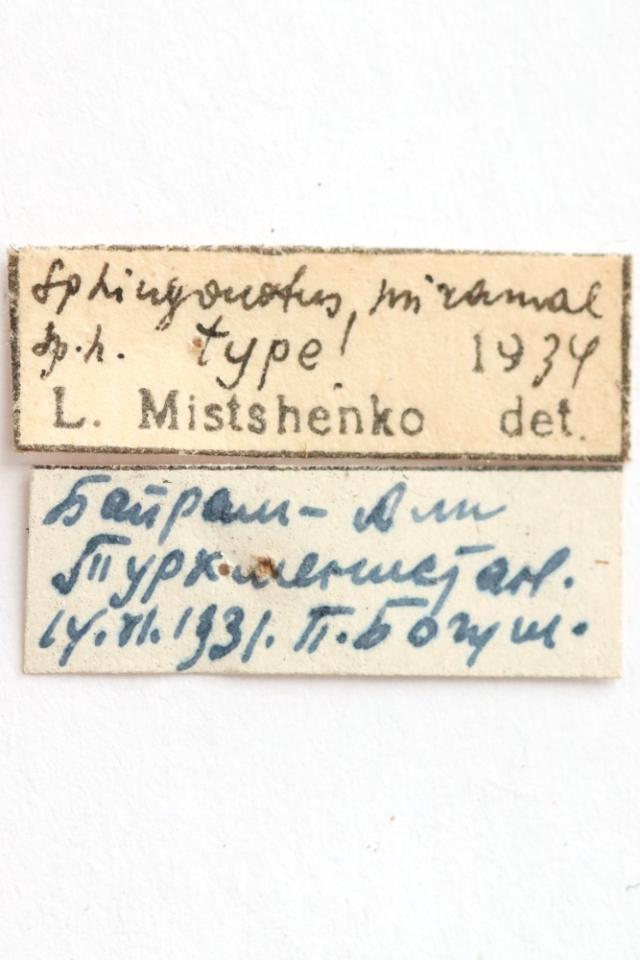 Sphingonotus miramae
sp. n. type! 1934
L. Mistshenko det.
Байрам-Али
Туркменистан.
14.VI.1931. П. Богуш.